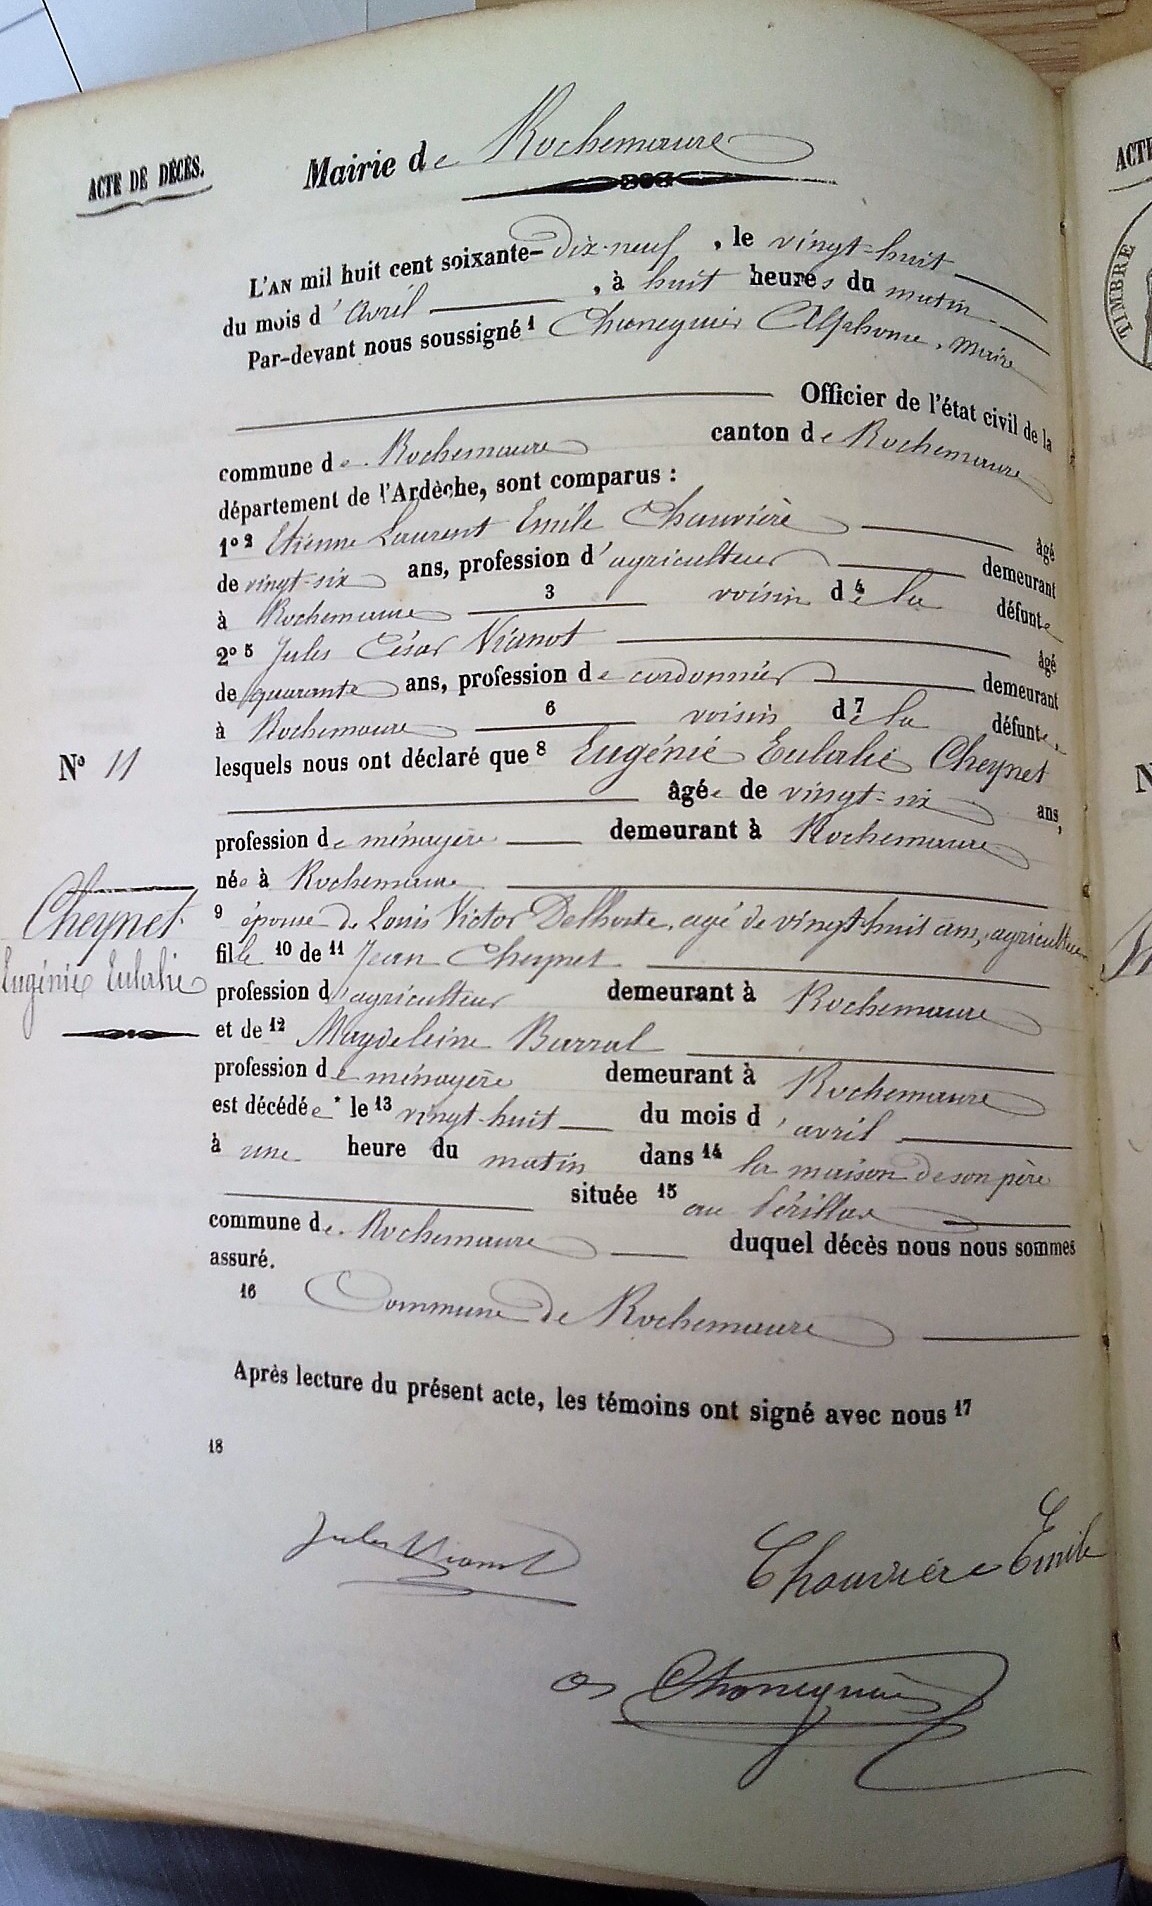 ACTE DE DÉCÈS.
Mairie de Rochemaure
L'AN mil huit cent soixante-dix-neuf, le vingt-huit
du mois d'avril, à huit heures du matin
Par-devant nous soussigné 1 Alphonse, Maire
Officier de l'état civil de la
commune de Rochemaure canton de Rochemaure
département de l'Ardèche, sont comparus :
1º 2 Etienne Laurent Emile Chauvière âgé
de vingt-six ans, profession d'agriculteur demeurant
à Rochemaure 3 voisin de 4 la défunte
2º 5 Jules César Vianot âgé
de quarante ans, profession de cordonnier demeurant
à Rochemaure 6 voisin de 7 la défunte
Nº 11
lesquels nous ont déclaré que 8 Eugénie Eulalie Cheynet
âgée de vingt-six ans,
profession de ménagère demeurant à Rochemaure
née à Rochemaure
Cheynet
Eugénie Eulalie
9 épouse de Louis Victor Delhoste, agé de vingt huit ans, agriculteur
fille 10 de 11 Jean Cheynet
profession d'agriculteur demeurant à Rochemaure
et de 12 Magdeleine Barral
profession de ménagère demeurant à Rochemaure
est décédée * le 13 vingt-huit du mois d'avril
à une heure du matin dans 14 la maison de son père
située 15 au
commune de Rochemaure duquel décès nous nous sommes
assuré.
16 Commune de Rochemaure
Après lecture du présent acte, les témoins ont signé avec nous 17
18
Jules Vianot
Chauvière Emile
ACTE
TIMBRE
N